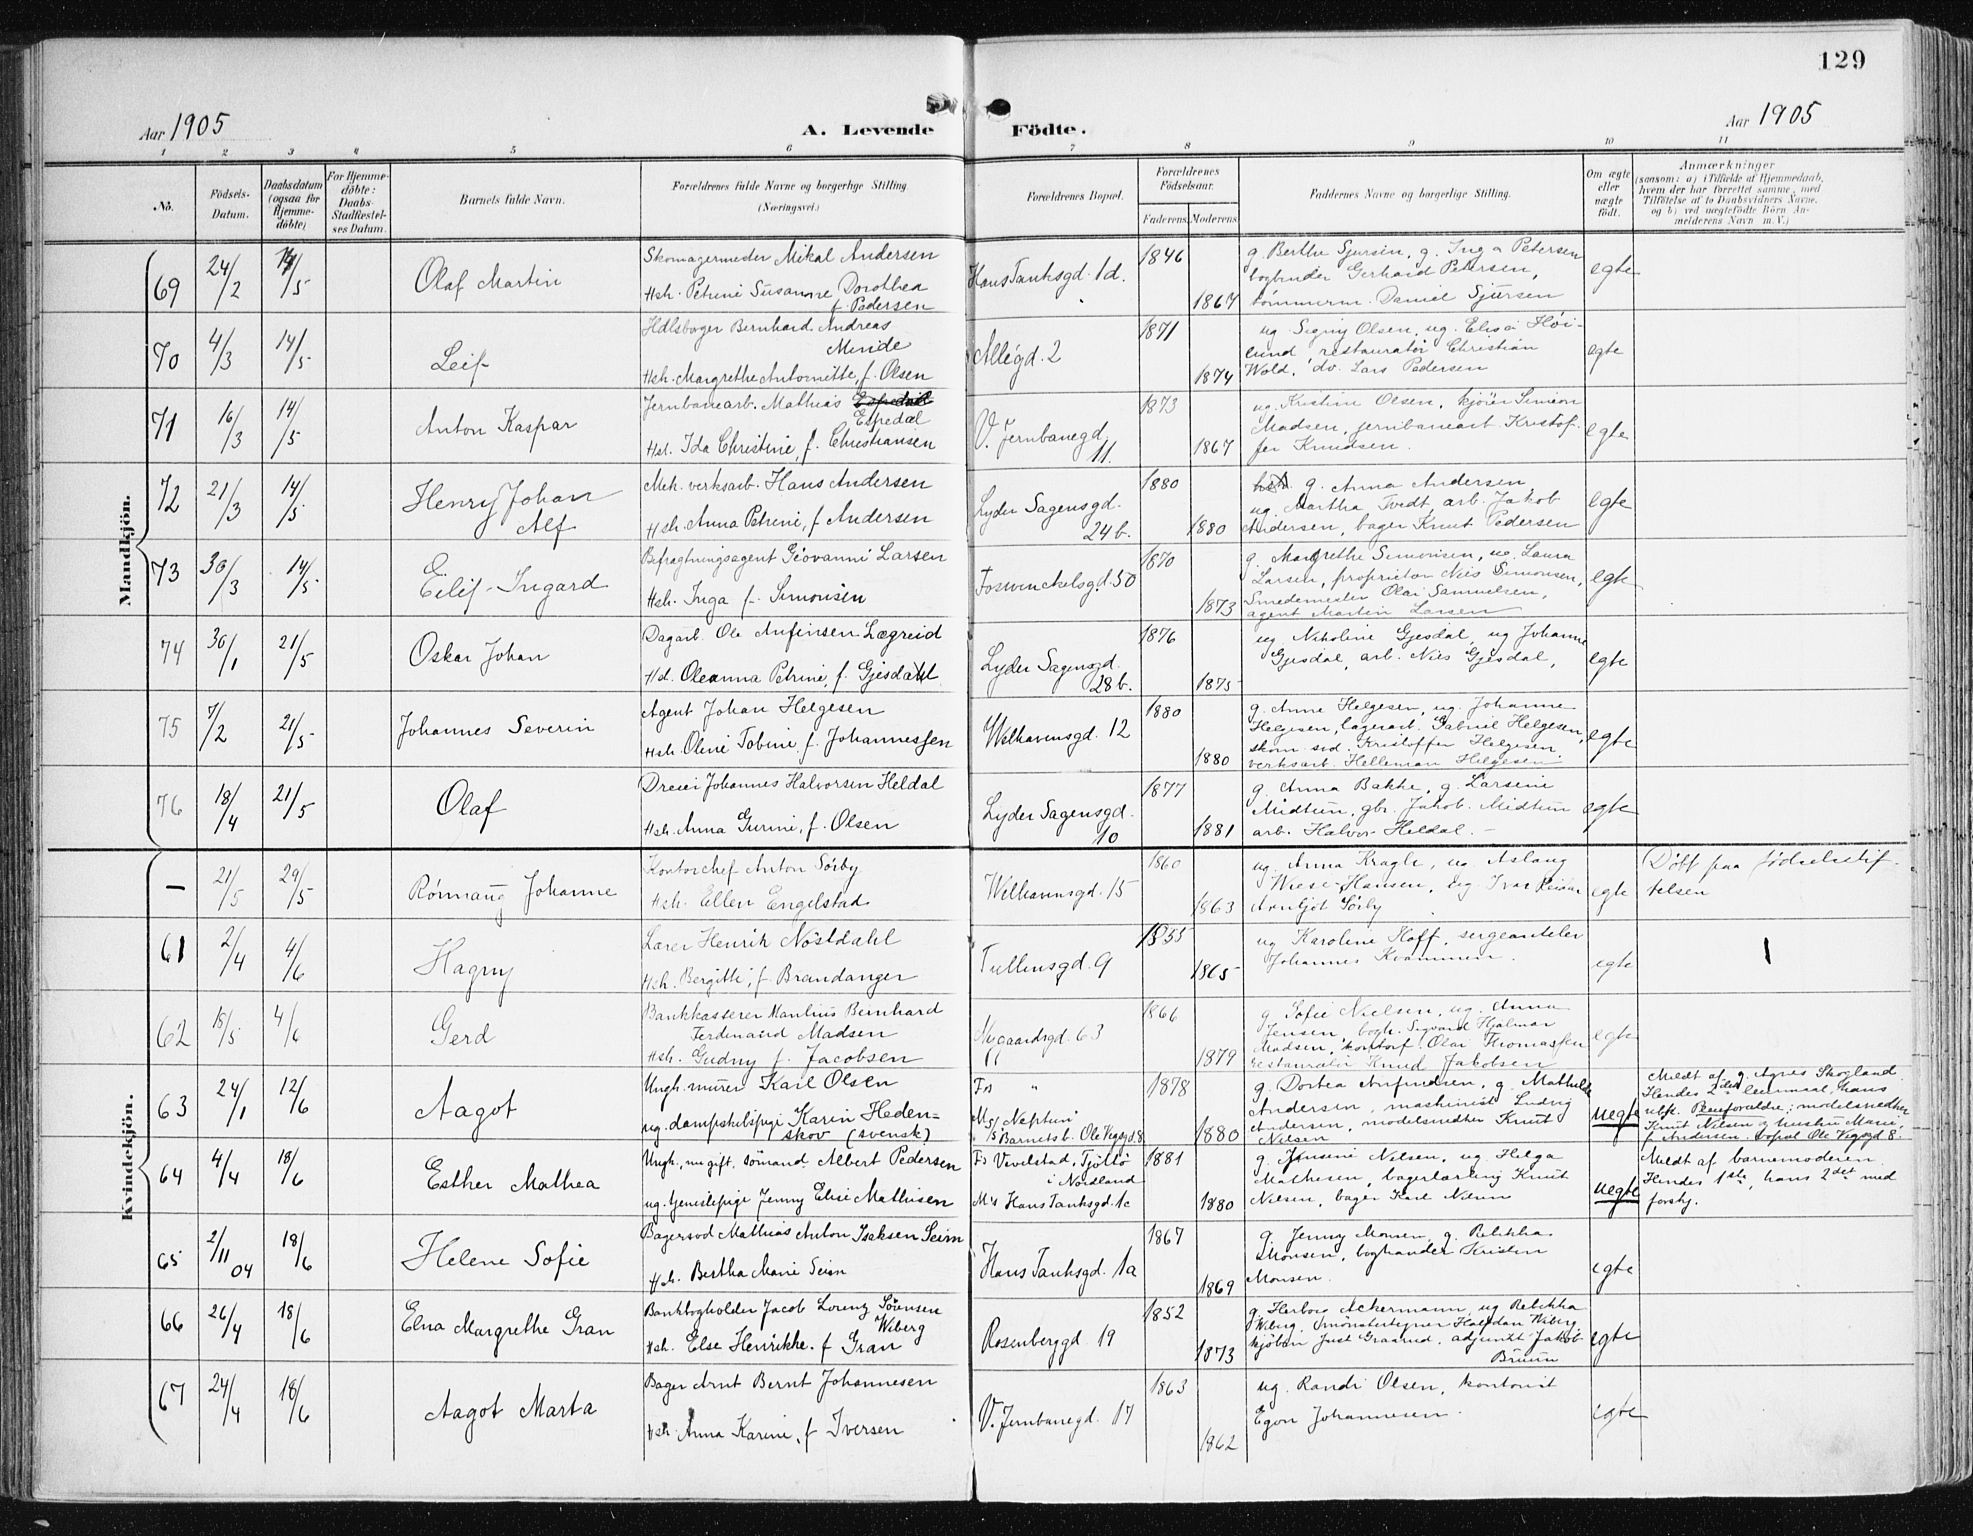 129
Aar 1905
A. Levende
Födte.
Aar 1905
1 2 3 4 5 6 7 8 9 10 11
No.
Födsels-
Datum.
Daabsdatum
(ogsaa for
Hjemme-
döbte)
For Hjemme-
döbte:
Daabs-
Stadfæstel-
ses Datum.
Barnets fulde Navn.
Forældrenes fulde Navne og borgerlige Stilling
(Næringsvei.)
Forældrenes Bopæl.
Forældrenes
Födselsaar.
Faderens Moderens
Faddernes Navne og borgerlige Stilling.
Om ægte
eller
uægte
födt.
Anmærkninger
(saasom: a) i Tilfælde af Hjemmedaab,
hvem der har forrettet samme, med
Tilföielse af to Daabsvidners Navne,
og b) ved uægtefödte Börn An-
melderens Navn m. V.)
Mandkjön.
69 24/2 14/5 Olaf Martin
Skomagermester Mikal Andersen
Hsh. Petrine Susanne Dorothea
f. Pedersen
Hans Tanksgd. 1d.
1846
1867
g. Berthe Sjursen, g. Inga Petersen
bogbinder Gerhard Petersen,
tömmerm. Daniel Sjursen
egte
70 4/3 14/5 Leif
Hdlsboger Bernhard Andreas
Minde
Hsh. Margrethe Antoinette, f. Olsen
Allégd. 2
1871
1874
ug. Signy Olsen, ug. Elisa Höi-
lund, restauratör Christian
Wold, do. Lars Pedersen
egte
71 16/3 14/5 Anton Kaspar
Jernbanearb. Mathias
Espedal
Hsh. Ida Christine, f. Christiansen
V. Jernbanegd.
11.
1873
1867
ug. Kristine Olsen, kjörer Simeon
Madsen, jernbanearb. Kristof-
fer Knudsen.
egte
72 21/3 14/5 Henry Johan
Alf
Mek. verksarb. Hans Andersen
Hsh. Anna Petrine, f. Andersen
Lyder Sagensgd.
24b.
1880
1880
g. Anna Andersen,
ug. Martha Tvedt, arb. Jakob
Andersen, bager Knut Pedersen
egte
73 30/3 14/5 Eilif Ingard
Befragtningsagent Giovanni Larsen
Hsh. Inga f. Simonsen
Foswinckelsgd. 50
1870
1873
g. Margrethe Simonsen, ug. Laura
Larsen, proprietær Nils Simonsen,
Smedemester Olai Samuelsen,
agent Martin Larsen
egte
74 30/1 21/5 Oskar Johan
Dagarb. Ole Anfinsen Lægreid
Hd. Oleanna Petrine, f. Gjesdahl
Lyder Sagensgd.
28b.
1876
1875
ug. Nikoline Gjesdal, ug Johanne
Gjesdal, arb. Nils Gjesdal,
egte
75 7/2 21/5 Johannes Severin
Agent Johan Helgesen
Hsh. Oline Tobine, f. Johannessen
Welhavensgd. 12
1880
1880
g. Anne Helgesen, ug. Johanne
Helgesen, lagerarb. Gabriel Helgesen,
skom. svd. Kristoffer Helgesen
verksarb. Helleman Helgesen.
egte
76 18/4 21/5 Olaf
Dreier Johannes Halvorsen Heldal
Hsh. Anna Gurine, f. Olsen
Lyder Sagensgd.
10
1877
1881
g. Anna Bakke, g. Larsine
Midtun, gbr. Jakob Midtun
arb. Halvor Heldal.
egte
Kvindekjön.
— 21/5 29/5 Rönnaug Johanne
Kontorchef Anton Sörby
Hsh. Ellen Engelstad
Welhavensgd. 15
1860
1863
ug. Anna Kragh, ug. Aslaug
Wiese-Hansen, ug. Ivar Reidar
Arnljot Sörby
egte
Döbt paa födselsstif-
telsen
61 2/4 4/6 Hagny
Lærer Henrik Nöstdahl
Hsh. Bergitte, f. Brandanger
Tullinsgd. 9
1855
1865
ug. Karoline Hoff, sergeantelev
Johannes Kvammen.
egte
1
62 18/5 4/6 Gerd
Bankkasserer Manlius Bernhard
Ferdinand Madsen
Hsh. Gudny f. Jacobsen
Nygaardsgd. 63
1866
1879
g. Sofie Nielsen, ug. Anna
Jensen, bogh. Sigvard Hjalmar
Madsen, kontorf. Olai Thomassen
restauratör Knud Jakobsen
egte
63 24/1 12/6 Aagot
Ungk. murer Karl Olsen
ug. dampskibspige Karin Heden-
skov (svensk)
Fs "
Ms / Neptun
Barnets b. Ole Vigsgd 8
1878
1880
g. Dortea Anfindsen, g. Mathilde
Andersen, maskinist Ludvig
Andersen, modelsnedker Knut
Nilsen
uegte
Meldt af g. Agnes Skogland
Hendes 2det leiermaal, hans
ubk. Pleieforældre: modelsnedker
Knut Nilsen og hustru Marie,
f. Andersen. bopæl Ole Vigsgd 8.
64 4/4 18/6 Esther Mathea
Ungk., nu gift, sömand Albert Pedersen
ug. tjenestepige Jenny Elise Mathisen
Fs Vevelstad, Tjöttö
i Nordland
Ms Hans Tanksgd. 1c
1881
1880
g. Jensine Nilsen, ug. Helga
Mathisen, bagerlærling Knut
Nilsen, bager Karl Nilsen
uegte
Meldt af barnemoderen
Hendes 1ste, hans 2det med
forskj.
65 2/11 04 18/6 Helene Sofie
Bagersvd Mathias Anton Isaksen Seim
Hsh. Bertha Marie Seim
Hans Tanksgd. 1a
1867
1869
g. Jenny Monsen, g. Rebekka
Monsen, boghandler Kristen
Monsen.
egte
66 26/4 18/6 Elna Margrethe Gran
Bankbogholder Jacob Lorenz Sörensen
Wiberg
Hsh. Else Henrikke f Gran
Rosenberggd 19
1852
1873
g. Herborg Ackermann, ug Rebekka
Wiberg, mönstertegner Halfdan Wiberg
kjöbm Just Graarud, adjunkt Jakob
Bruun
egte
67 24/4 18/6 Aagot Marta
Bager Arnt Bernt Johannesen
Hsh. Anna Karine, f Iversen
V. Jernbanegd. 17
1863
1862
ug. Randi Olsen, kontorist
Egon Johannesen.
egte